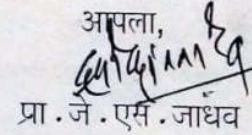 आपला,
प्रा . जे . एस . जाधव